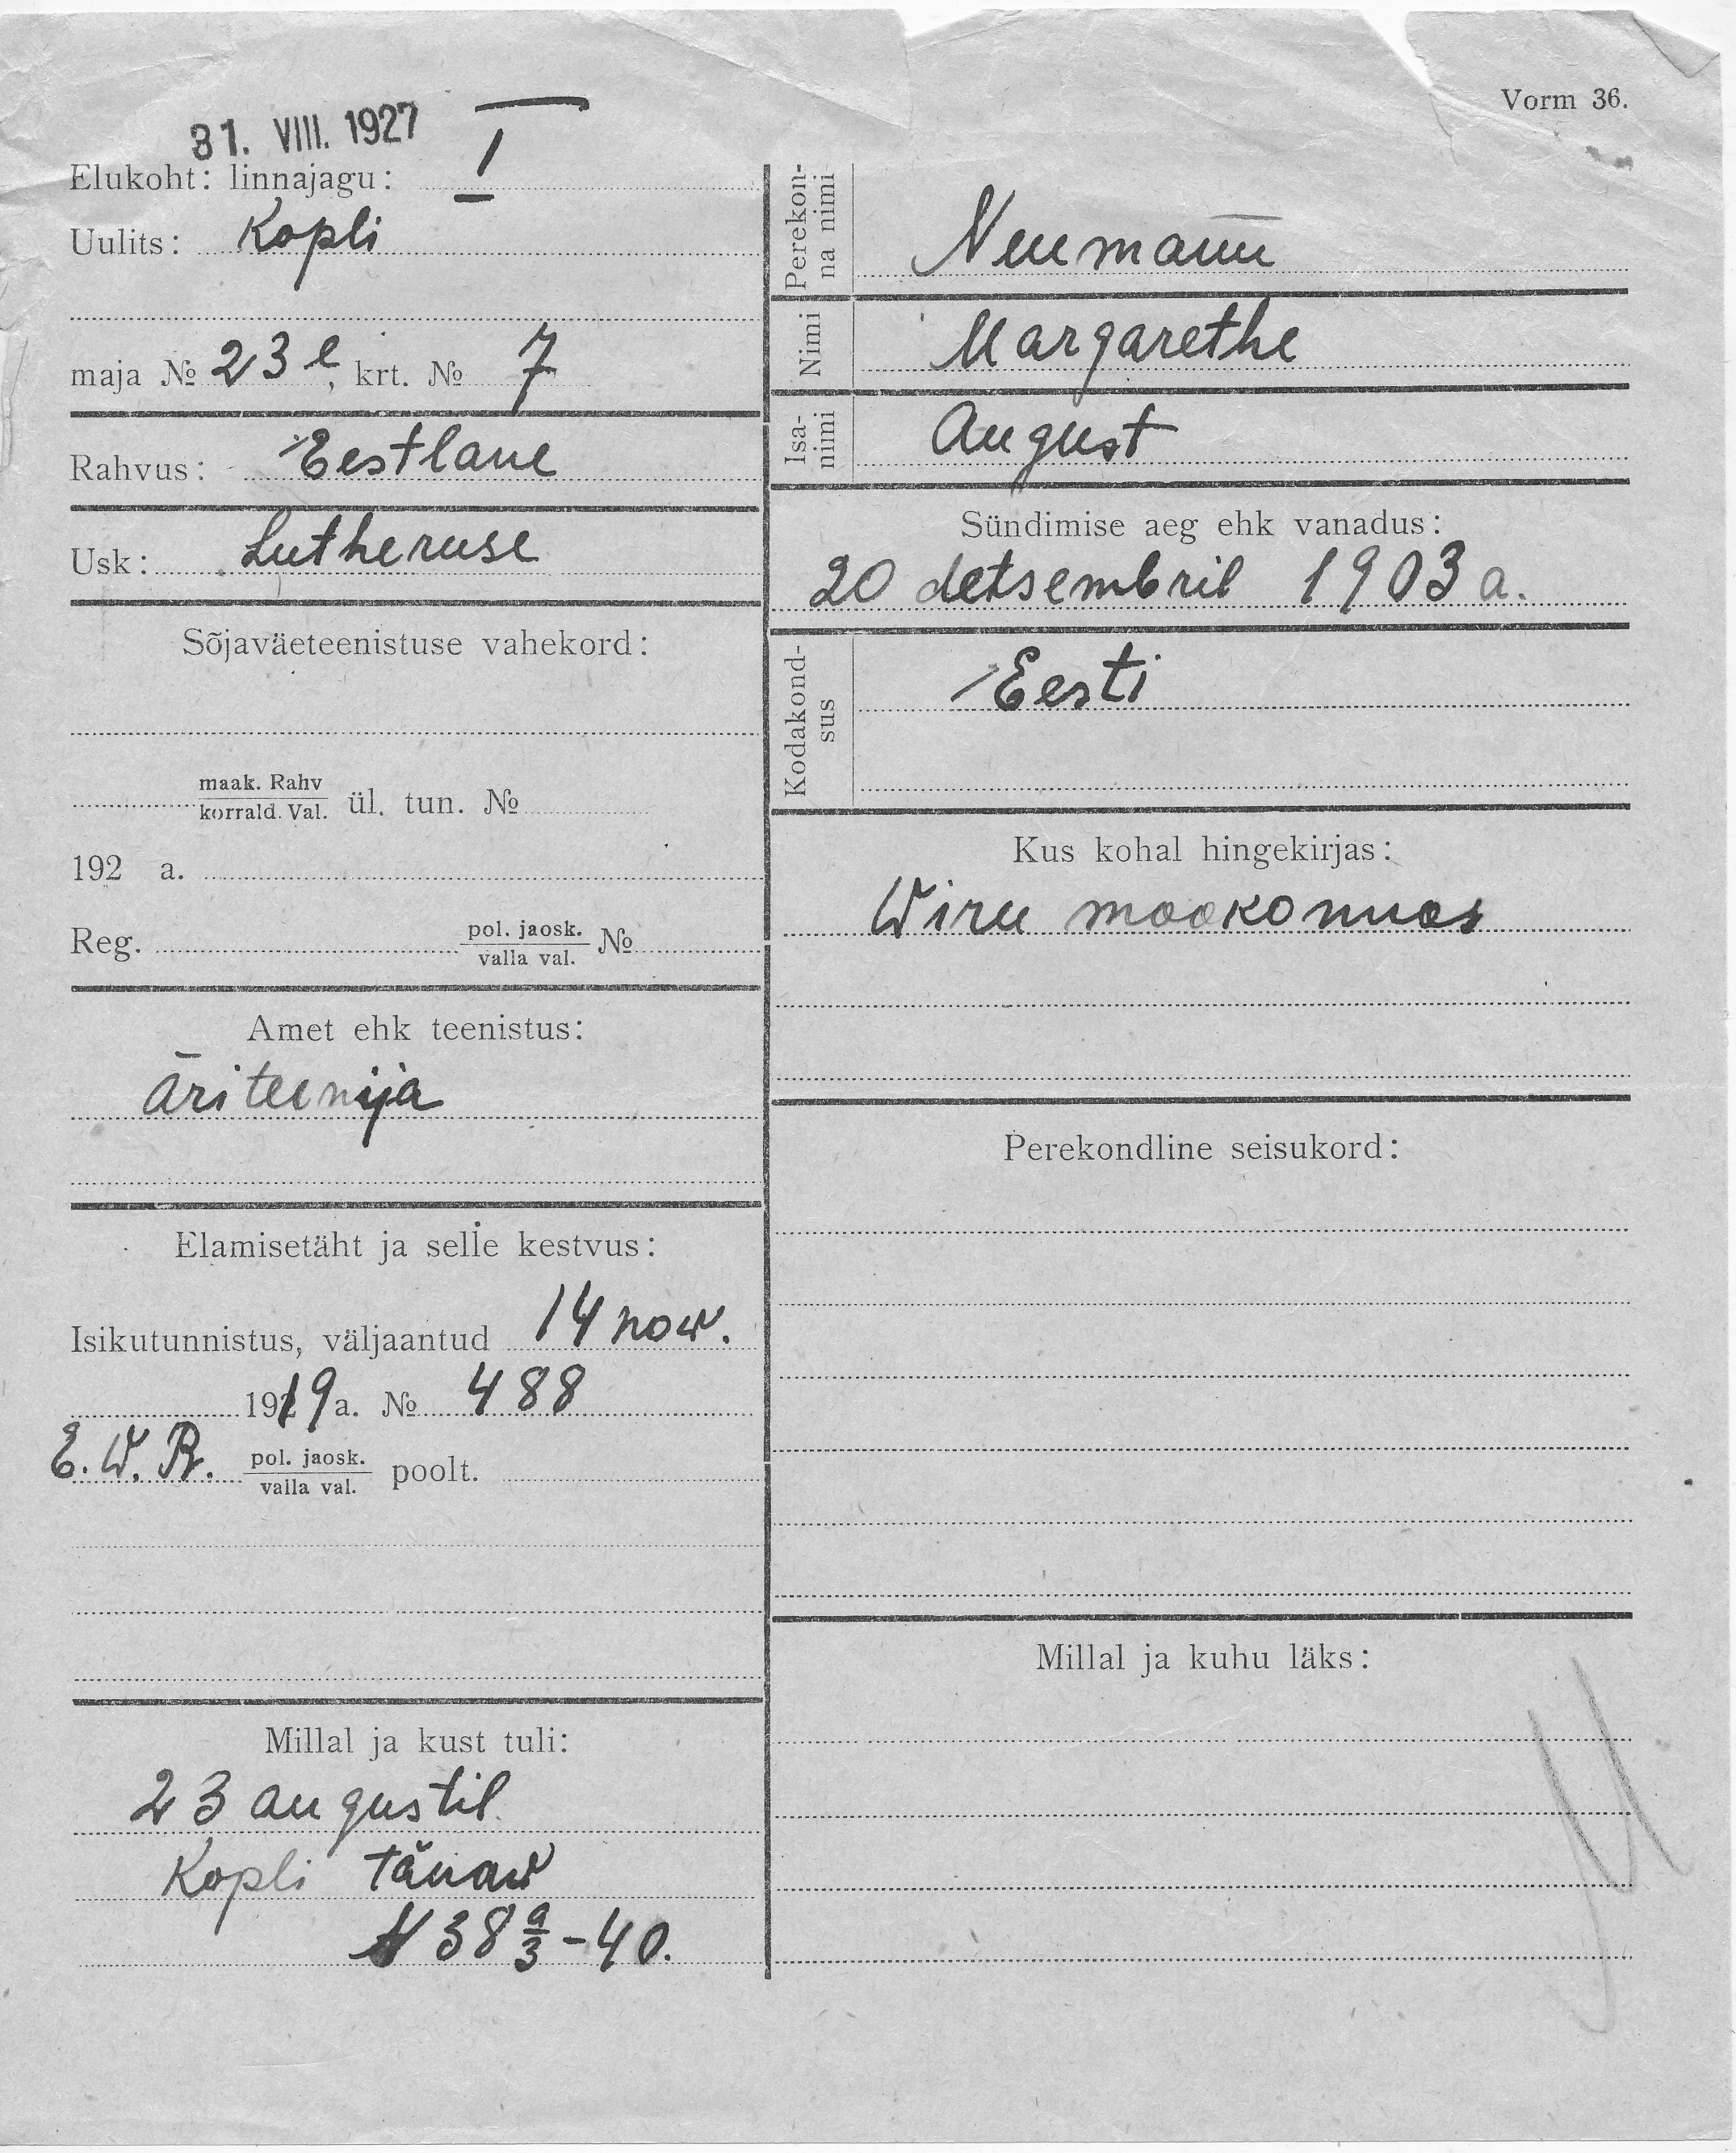 Vorm 36.
31. VIII. 1927
Elukoht: linnajagu: I
Uulits: Kopli
maja № 23 e, krt. № 7
Rahvus: Eestlane
Usk: Lutheruse
Sõjaväeteenistuse vahekord:
maak. Rahv
korrald. Val. ül. tun. №
192 a.
Reg. pol. jaosk. №
valla val.
Amet ehk teenistus:
äriteenija
Elamisetäht ja selle kestvus:
Isikutunnistus, väljaantud 14 now.
1919 a. № 488
E. W. R. pol. jaosk. poolt.
valla val.
Millal ja kust tuli:
23 augustil
Kopli tänaw
N 38 a/3 - 40.
Perekon-
na nimi
Neumann
Nimi Margarethe
Isa-
nimi
August
Sündimise aeg ehk vanadus:
20 detsembril 1903 a.
Kodakond-
sus
Eesti
Kus kohal hingekirjas:
Wiru maakonnas
Perekondline seisukord:
Millal ja kuhu läks: